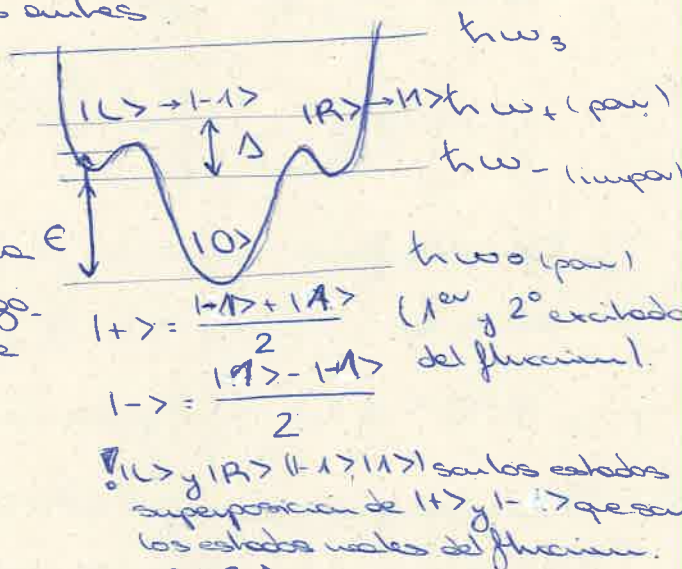 antes
ħω₃
|L> → |-1> |R> → |1> ħω₊ (par)
Δ
ħω₋ (impar)
ϵ
|0>
ħω₀ (par)
|+> = |-1> + |1> / 2 (1er y 2º excitado
del fluxonium).
|-> = |1> - |-1> / 2
! |L> y |R> (|-1> |1>) son los estados
superposición de |+> y |-> que son
los estados reales del fluxonium.